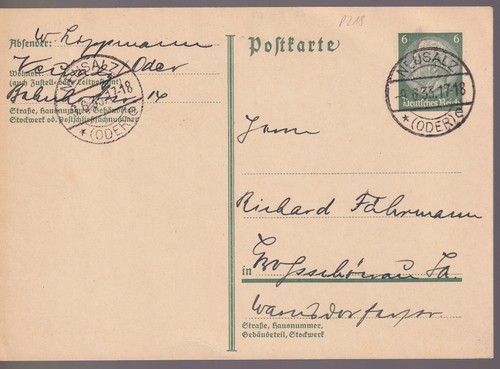 P218
Absender: W. Hoppmann
Neusalz, Oder
Wohnort
(auch Zustell- oder Leitpostamt)
14
Straße, Hausnummer, Gebäudeteil,
Stockwerk od. Postschließfachnummer
NEUSALZ
6.6.33.17-18
* (ODER)
Postkarte
6 6
Deutsches Reich
NEUSALZ
6.6.33.17-18
* (ODER)
Herrn
Richard Fährmann
in Großschönau Sa.
Straße, Hausnummer,
Gebäudeteil, Stockwerk